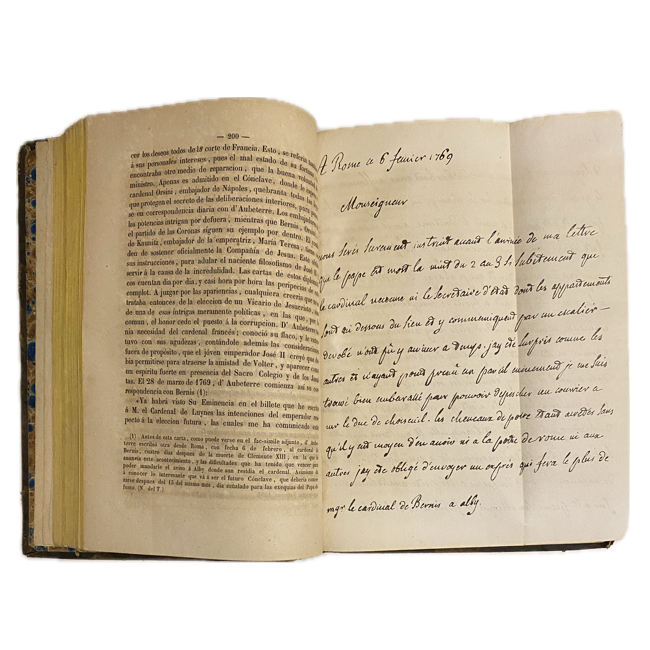 — 200 —
cer los deseos todos de la corte de Francia. Esto, se refería
á sus personales intereses, pues el mal estado de su fortuna
encontraba otro medio de reparacion, que la buena voluntad
ministro. Apenas es admitido en el Cónclave, donde le
cardenal Orsini, embajador de Nápoles, quebranta todas
que protegen el secreto de las deliberaciones interiores, para
se en correspondencia diaria con d'Aubeterre. Los embajadores
las potencias intrigan por defuera, mientras que Bernis, Orsini
el partido de las Coronas siguen su ejemplo por dentro. El
de Kaunitz, embajador de la emperatriz, María Teresa,
den de sostener oficialmente la Compañía de Jesus. Este
sus instrucciones, para adular el naciente filosofismo de José II
servir á la causa de la incredulidad. Las cartas de estos
cos cuentan dia por dia, y casi hora por hora las peripecias
complot. A juzgar por las apariencias, cualquiera creeria que
trataba entonces de la eleccion de un Vicario de Jesucristo,
de una de esas intrigas meramente políticas, en las que, por
comun, el honor cede el puesto á la corrupcion. D' Aubeterre
nia necesidad del cardenal francés; conoció su flaco, y le
tuvo con sus agudezas, contándole además las consideraciones
fuera de propósito, que el jóven emperador José II creyó que
bia permitirse para atraerse la amistad de Volter, y aparecer
un espíritu fuerte en presencia del Sacro Colegio y de los
tas. El 28 de marzo de 1769, d' Aubeterre comienza así su
rrespondencia con Bernis (1):
«Ya habrá visto Su Eminencia en el billete que he escrito
á M. el Cardenal de Luynes las intenciones del emperador
pecto á la eleccion futura, las cuales me ha comunicado
(1) Antes de esta carta, como puede verse en el fac-simile adjunto, d'
terre escribió otra desde Roma, con fecha 6 de febrero, al cardenal
Bernis, cuatro dias despues de la muerte de Clemente XIII, en la que
manda este acontecimiento, y las dificultades que ha tenido que vencer para
poder mandarle el aviso á Alby donde aun residia el cardenal. Asimismo
á conocer lo interesante que vá á ser el futuro Cónclave, que deberia
zarse despues del 15 del mismo mes, dia señalado para las exequias del Papa
funto. (N. del T.)
A Rome ce 6 fevrier 1769
Monseigneur
vous serés surement instruit avant l'arrivée de ma lettre
que le pape est mort la nuit du 2 au 3 si subitement que
le cardinal neveu ni le Secretaire d'état dont les appartements
sont au dessous du sien et y communiquent par un escalier
derobé n'ont pû y arriver a temps. jay été surpris comme les
autres et n'ayant point prevû un pareil evenement je me suis
trouvé bien embarassé pour pouvoir depecher un courier a
mr le duc de choiseuil. les chevaux de poste étant arretés sans
qu'il y eut moyen d'en avoir ni a la poste de rome ni aux
autres jay été obligé d'envoyer un exprés que fera le plus de
mgr le cardinal de Bernis a alby.